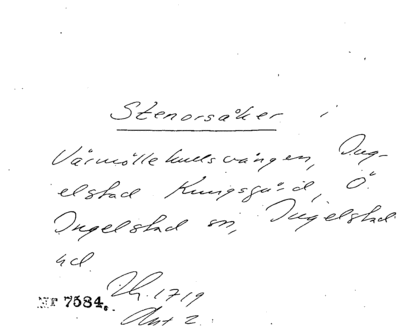 Stenorsåker i
Värmöllekullsvången, Ing-
elstad Kungsgård, Ö.
Ingelstad sn, Ingelstad
hd.
1719
Nr 7584.
Akt 2.